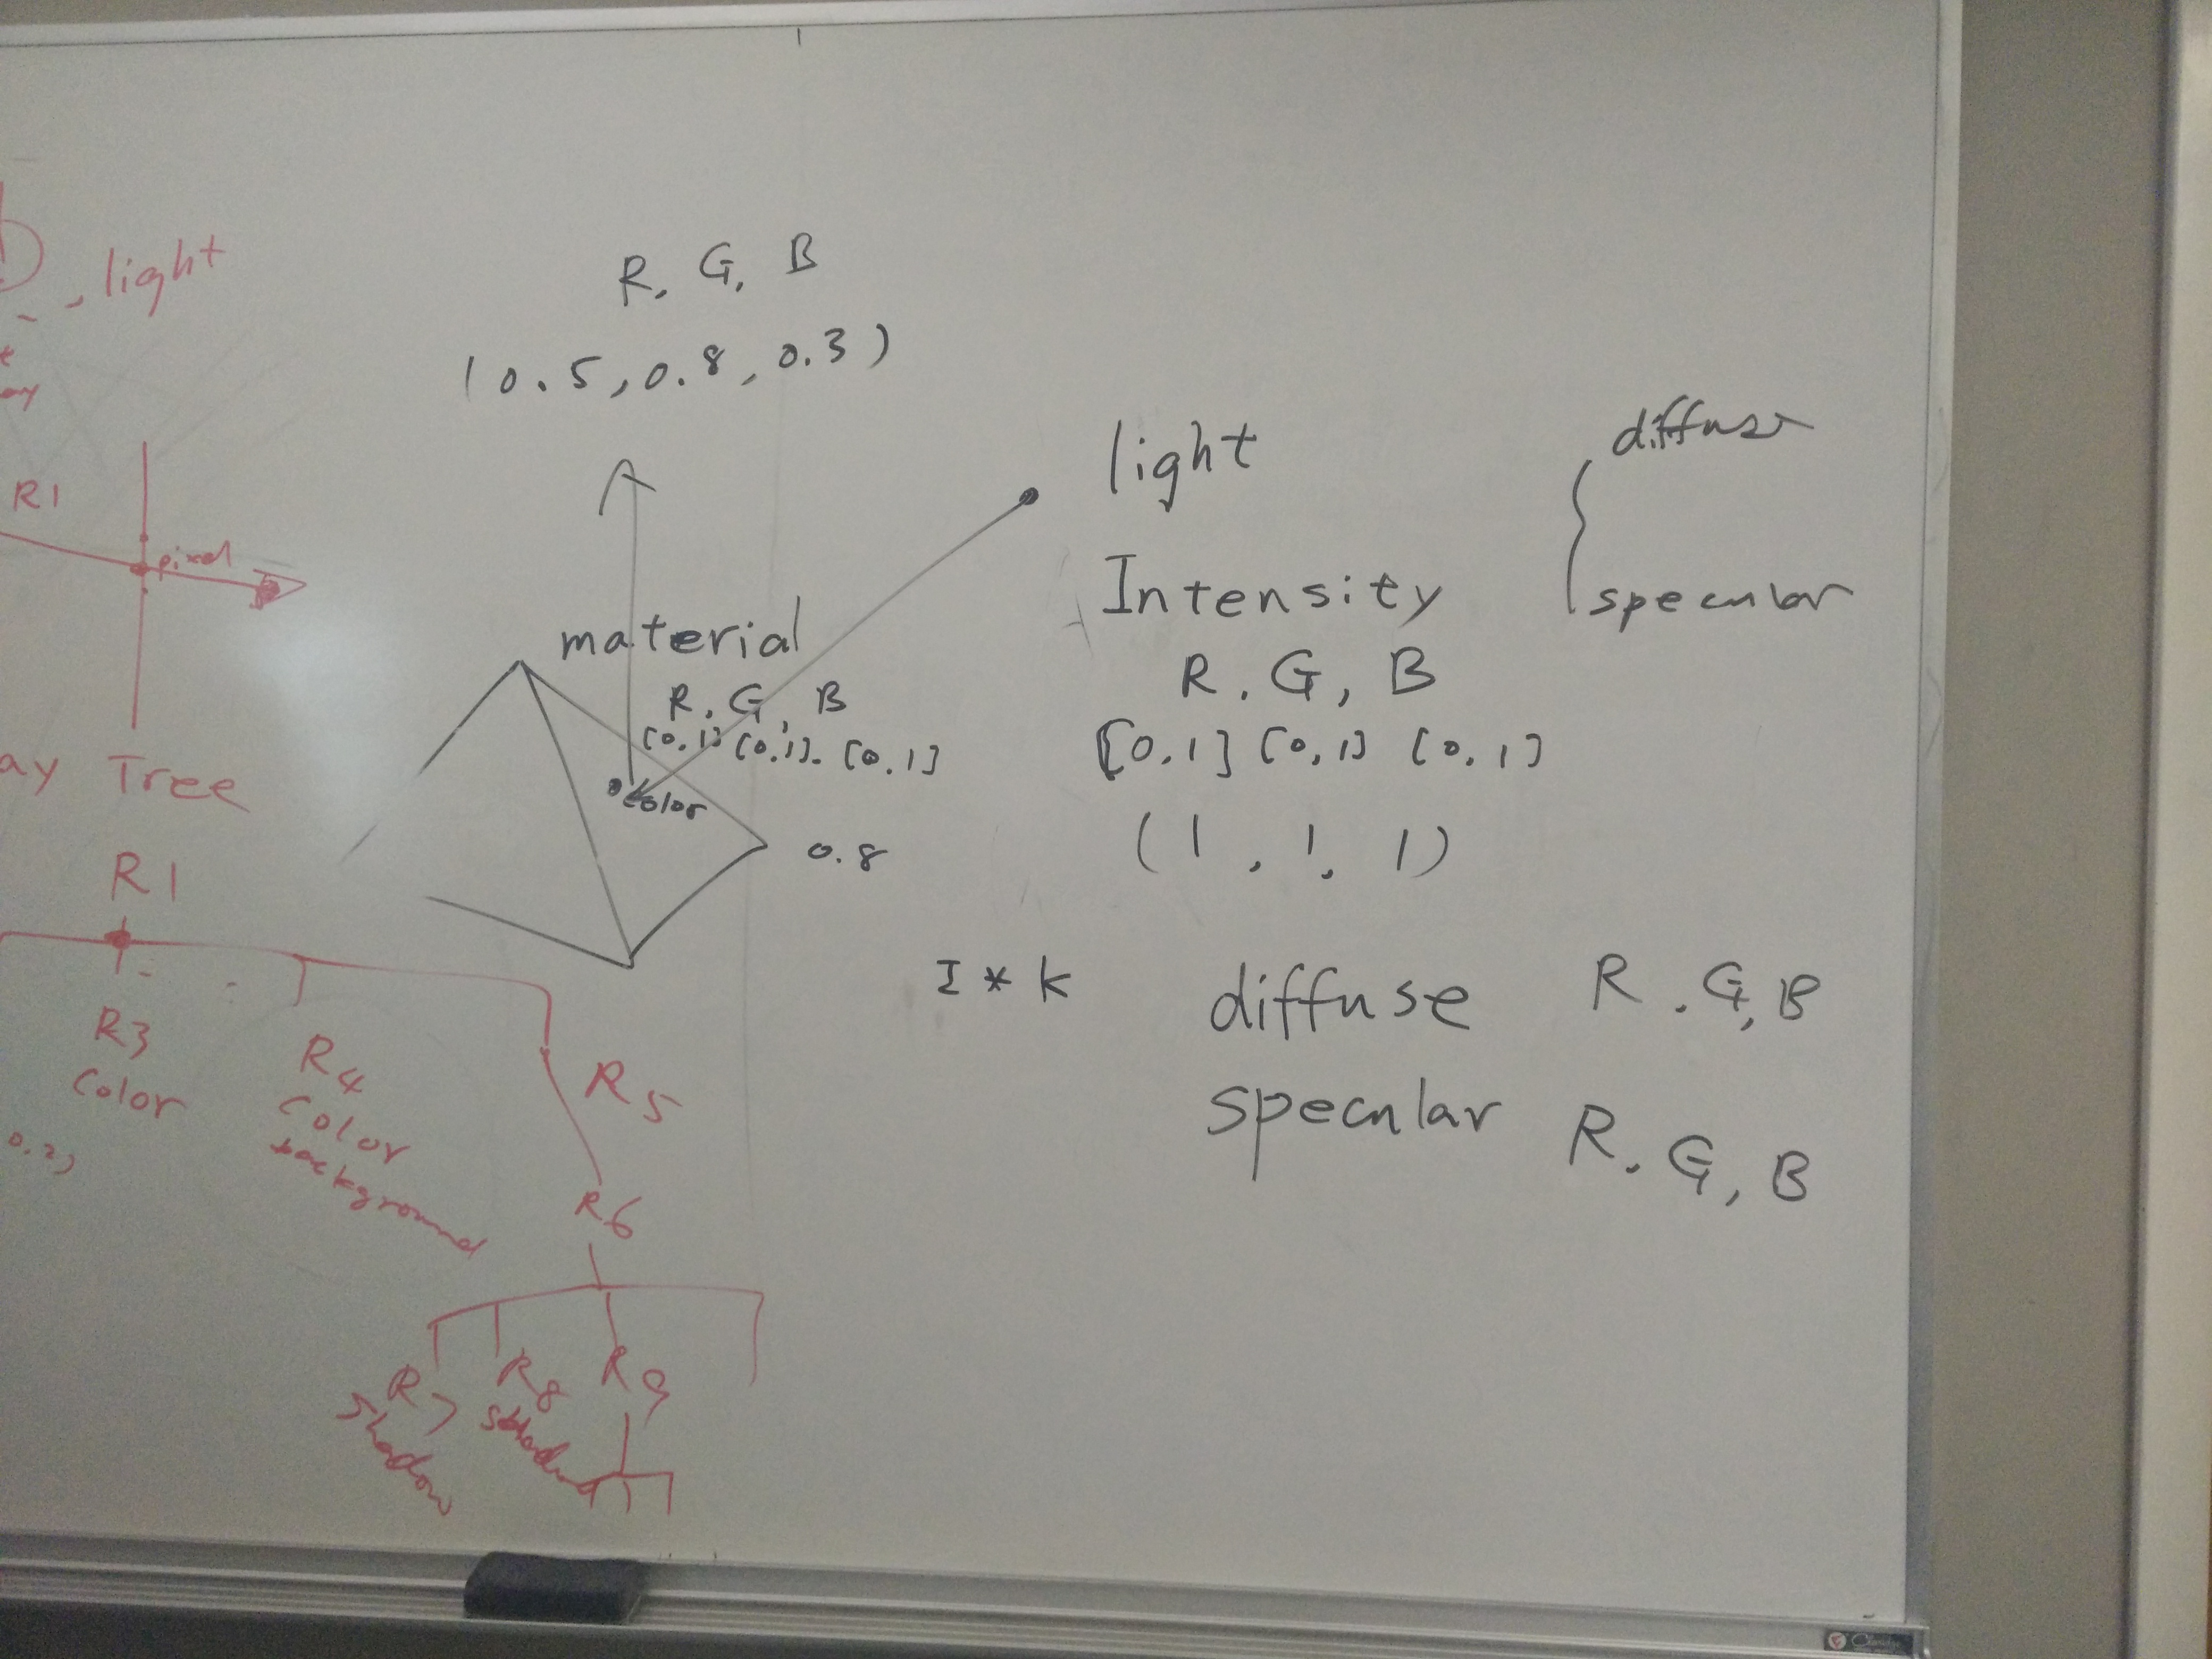 light
R1
pixel
Tree
R1
R3
Color
R4
Color
background
R5
0.2)
R6
R7
Shadow
R8
R9
R, G, B
(0.5, 0.8, 0.3)
material
R, G, B
[0,1] [0,1]. [0,1]
color
0.8
light
Intensity
R, G, B
[0,1] [0,1] [0,1]
(1, 1, 1)
diffuse
specular
I * k
diffuse R, G, B
specular R, G, B